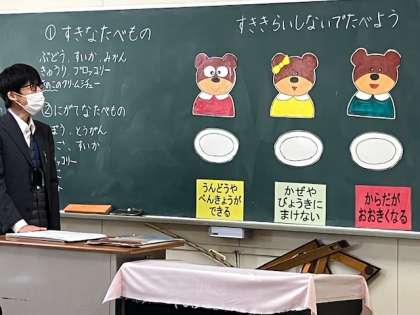 ① すきなたべもの
ぶどう、すいか、みかん
きゅうり ブロッコリー
きのこのクリームシチュー
②にがてなたべもの
ぼう、とうがん
ご、すいか
コリー
すききらいしないでたべよう
うんどうや
べんきょうが
できる
かぜや
びょうきに
まけない
からだが
おおきくなる